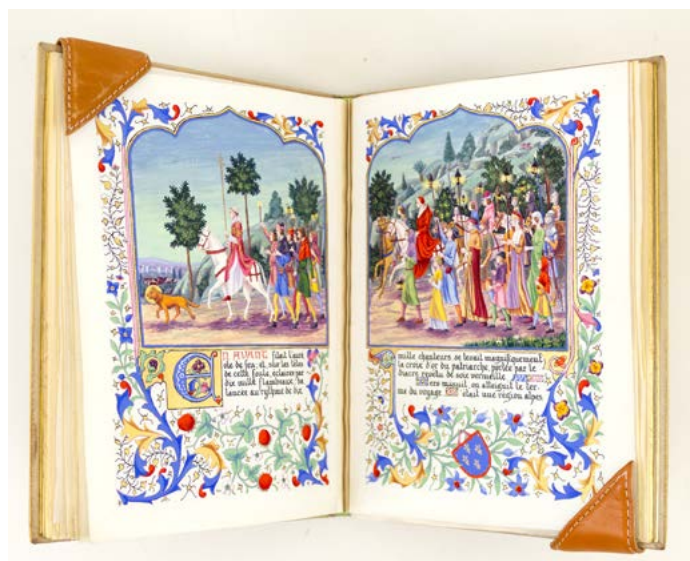 EN AVANT filait l'aure
ole de feu, et, sur les têtes
de cette foule, éclairée par
dix mille flambeaux, ba
lancée au rythme de dix
mille chanteurs, se levait magnifiquement
la croix d'or du patriarche, portée par le
diacre revêtu de soie vermeille.
Vers minuit, on atteignit le ter-
me du voyage. C'était une région alpes